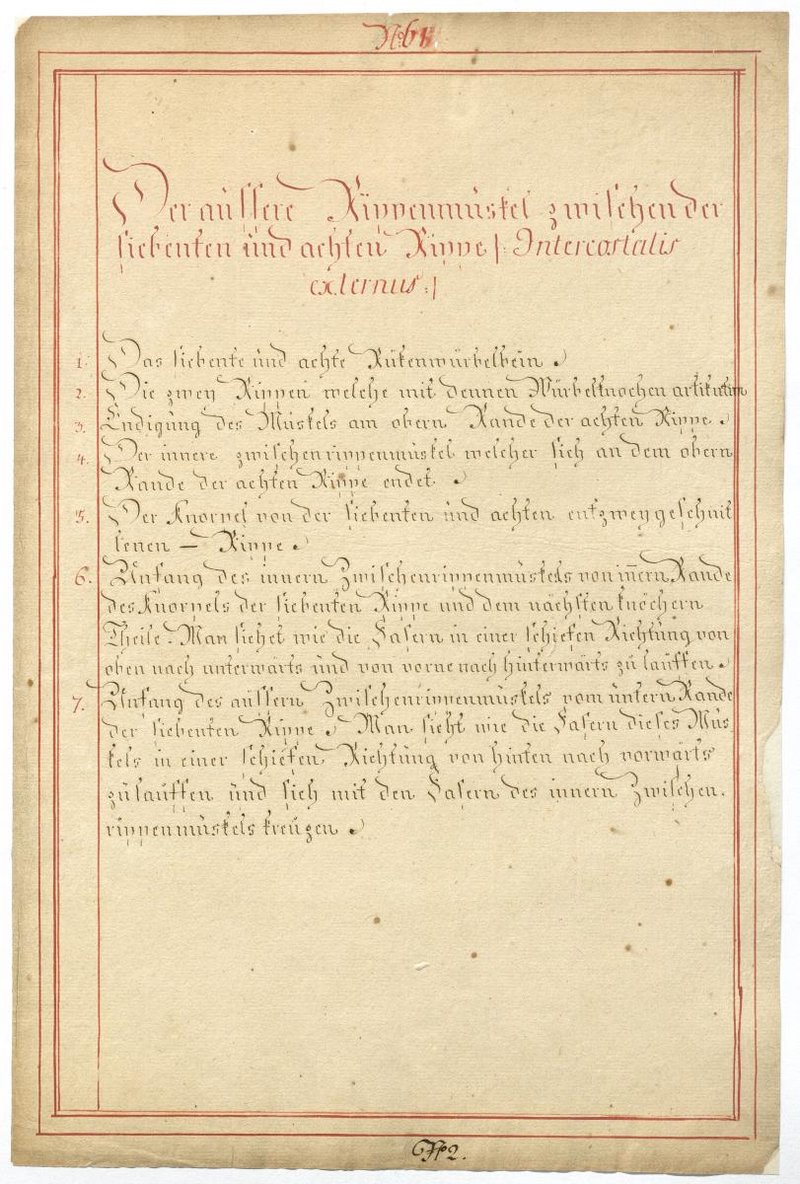 No 61
Der aüssere Rippenmüskel zwischen der
siebenten ünd achten Rippe |: Intercostalis
externus :|
1. Das siebente ünd achte Rükenwürbelbein.
2. Die zwey Rippen welche mit dennen Würbelknochen
3. Endigüng des Müskels am obern Rande der achten Rippe.
4. Der innere zwischenrippenmüskel welcher sich an dem obern
Rande der achten Rippe endet.
5. Der Knorpel von der siebenten ünd achten entzweygeschnit
tenen — Rippe.
6. Anfang des innern Zwischenrippenmüskels von innern Rande
des Knorpels der siebenten Rippe ünd dem nächsten knöchern
Theile. Man siehet wie die Fasern in einer schiefen Richtüng von
oben nach unterwärts ünd von vorne nach hinterwärts zü lauffen.
7. Anfang des aüssern Zwischenrippenmüskels vom üntern Rande
der siebenten Rippe. Man sieht wie die Fasern dieses Müs
kels in einer schiefen Richtüng von hinten nach vorwärts
zü lauffen ünd sich mit den Fasern des innern Zwischen.
rippenmüskels kreüzen.
No 2.